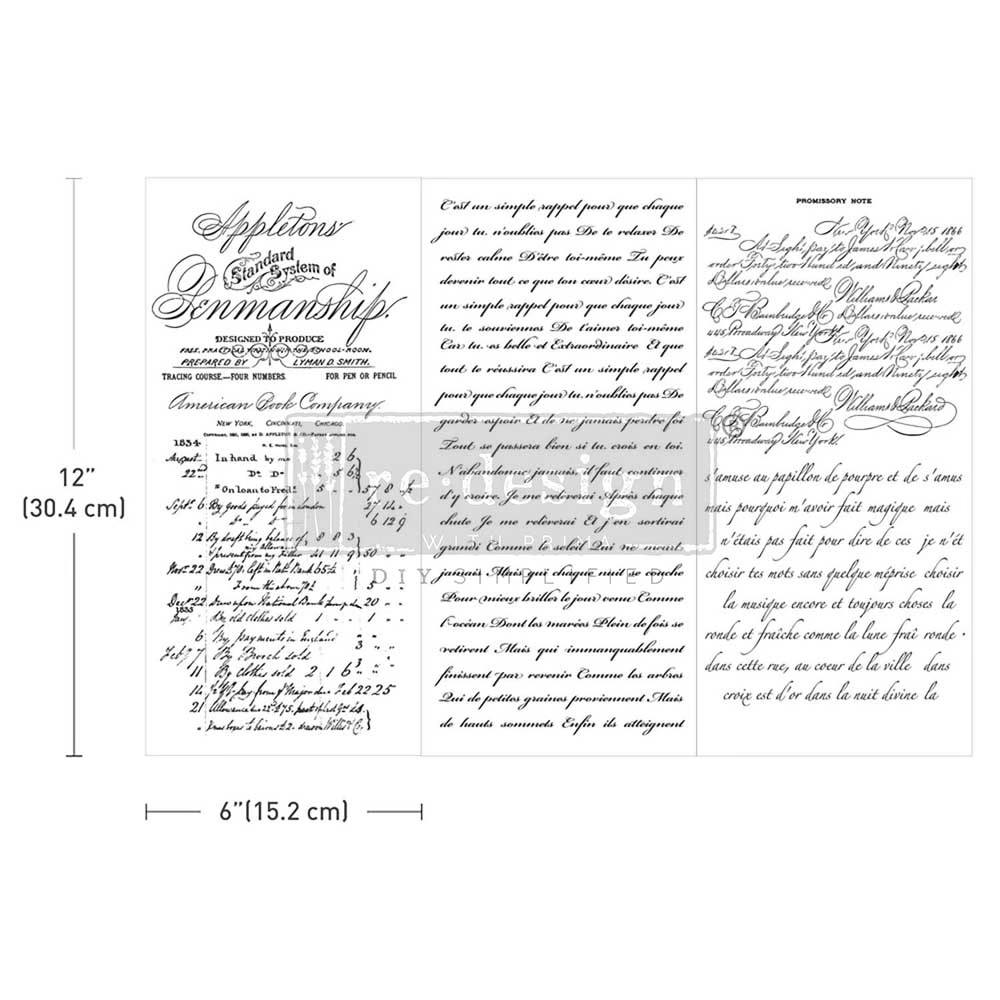 Appletons'
Standard
System of
Penmanship.
DESIGNED TO PRODUCE
PREPARED BY LYMAN D. SMITH.
TRACING COURSE—FOUR NUMBERS. FOR PEN OR PENCIL
American Book Company.
NEW YORK, CINCINNATI, CHICAGO.
1834
August In hand by me 2 6
22nd Do Do 5 6
"On loan to Fred: 5 57 8
Sept. 6 By goods payed for in London 27 14
6 12 9
12 By draft being balance of 8 8 3
my allowance
present from my Father 41 11 9 50
Nov. 22
5
Decr 22 Drawn upon National Bank 20
1835
Jany. By old clothes sold 1 1
6 By payments in England 3
Feb 7 7 By Brooch sold 3
11 By clothes sold 2 1 6
14 Feb 22 25
21 Allowance
C'est un simple rappel pour que chaque
jour tu n'oublies pas De te relaxer De
rester calme D'être toi-même Tu peux
devenir tout ce que ton cœur désire. C'est
un simple rappel pour que chaque jour
tu te souviennes De t'aimer toi-même
Car tu es belle et Extraordinaire Et que
tout te réussira C'est un simple rappel
pour que chaque jour tu n'oublies pas De
garder espoir Et de ne jamais perdre foi
Tout se passera bien si tu crois en toi.
N'abandonne jamais, il faut continuer
d'y croire. Je me relèverai Après chaque
chute Je me relèverai Et j'en sortirai
grandi Comme le soleil Qui ne meurt
jamais Mais qui chaque nuit se couche
Pour mieux briller le jour venu Comme
l'océan Dont les marées Plein de fois se
retirent Mais qui immanquablement
finissent par revenir Comme les arbres
Qui de petites graines proviennent Mais
de hauts sommets Enfin ils atteignent
PROMISSORY NOTE
New York Nov 15 1866
At Sight, pay to James W. Carr, bill, or
order Forty two Hundred, and Ninety eight
Dollars value received
Williams & Packar
C. F. Bainbridge & Co Dollars value received
445 Broadway New York New York Nov 15 1866
At Sight, pay to James W. Carr, bill, or
order Forty two Hundred, and Ninety eight
Dollars value received
Williams & Packard
C. F. Bainbridge & Co
445 Broadway New York
s'amuse au papillon de pourpre et de s'amus
mais pourquoi m'avoir fait magique mais
n'étais pas fait pour dire de ces je n'ét
choisir tes mots sans quelque méprise choisir
la musique encore et toujours choses la
ronde et fraîche comme la lune fraî ronde
dans cette rue, au coeur de la ville dans
croix est d'or dans la nuit divine la
re·design
WITH PRIMA
DIY SIMPLIFIED
12"
(30.4 cm)
6"(15.2 cm)